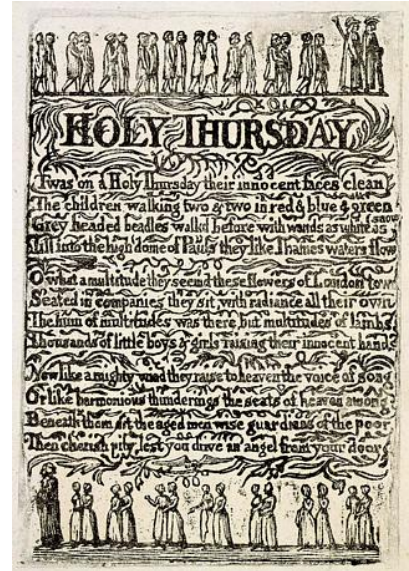 HOLY THURSDAY
Twas on a Holy Thursday their innocent faces clean
The children walking two & two in red & blue & green
Grey headed beadles walkd before with wands as white as snow
Till into the high dome of Pauls they like Thames waters flow
O what a multitude they seemd these flowers of London town
Seated in companies they sit with radiance all their own
The hum of multitudes was there but multitudes of lambs
Thousands of little boys & girls raising their innocent hands
Now like a mighty wind they raise to heaven the voice of song
Or like harmonious thunderings the seats of heaven among
Beneath them sit the aged men wise guardians of the poor
Then cherish pity, lest you drive an angel from your door